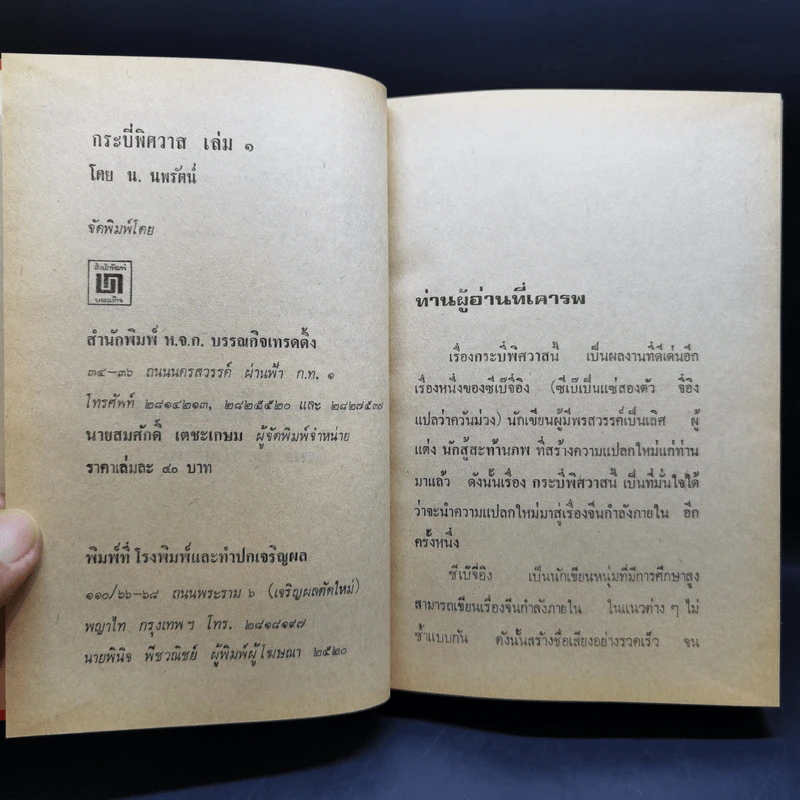 กระบี่พิศวาส เล่ม ๑
โดย น. นพรัตน์
จัดพิมพ์โดย
สำนักพิมพ์
บรรณกิจ
สำนักพิมพ์ ห.จ.ก. บรรณกิจเทรดดิ้ง
๓๔-๓๖ ถนนนครสวรรค์ ผ่านฟ้า ก.ท. ๑
โทรศัพท์ ๒๘๑๔๒๑๓, ๒๘๒๕๕๒๐ และ ๒๘๒๗๕๓๗
นายสมศักดิ์ เตชะเกษม ผู้จัดพิมพ์จำหน่าย
ราคาเล่มละ ๔๐ บาท
พิมพ์ที่ โรงพิมพ์และทำปกเจริญผล
๑๑๐/๖๖-๖๘ ถนนพระราม ๖ (เจริญผลตัดใหม่)
พญาไท กรุงเทพฯ โทร. ๒๘๑๘๑๙๗
นายพินิจ พืชวณิชย์ ผู้พิมพ์ผู้โฆษณา ๒๕๒๐
ท่านผู้อ่านที่เคารพ
เรื่องกระบี่พิศวาสนี้ เป็นผลงานที่ดีเด่นอีก
เรื่องหนึ่งของซีเบ๊จี่อิง (ซีเบ๊เป็นแซ่สองตัว จี้อิง
แปลว่าควันม่วง) นักเขียนผู้มีพรสวรรค์เป็นเลิศ ผู้
แต่ง นักสู้สะท้านภพ ที่สร้างความแปลกใหม่แก่ท่าน
มาแล้ว ดังนั้นเรื่อง กระบี่พิศวาสนี้ เป็นที่มั่นใจได้
ว่าจะนำความแปลกใหม่มาสู่เรื่องจีนกำลังภายใน อีก
ครั้งหนึ่ง
ซีเบ๊จี่อิง เป็นนักเขียนหนุ่มที่มีการศึกษาสูง
สามารถเขียนเรื่องจีนกำลังภายใน ในแนวต่าง ๆ ไม่
ซ้ำแบบกัน ดังนั้นสร้างชื่อเสียงอย่างรวดเร็ว จน